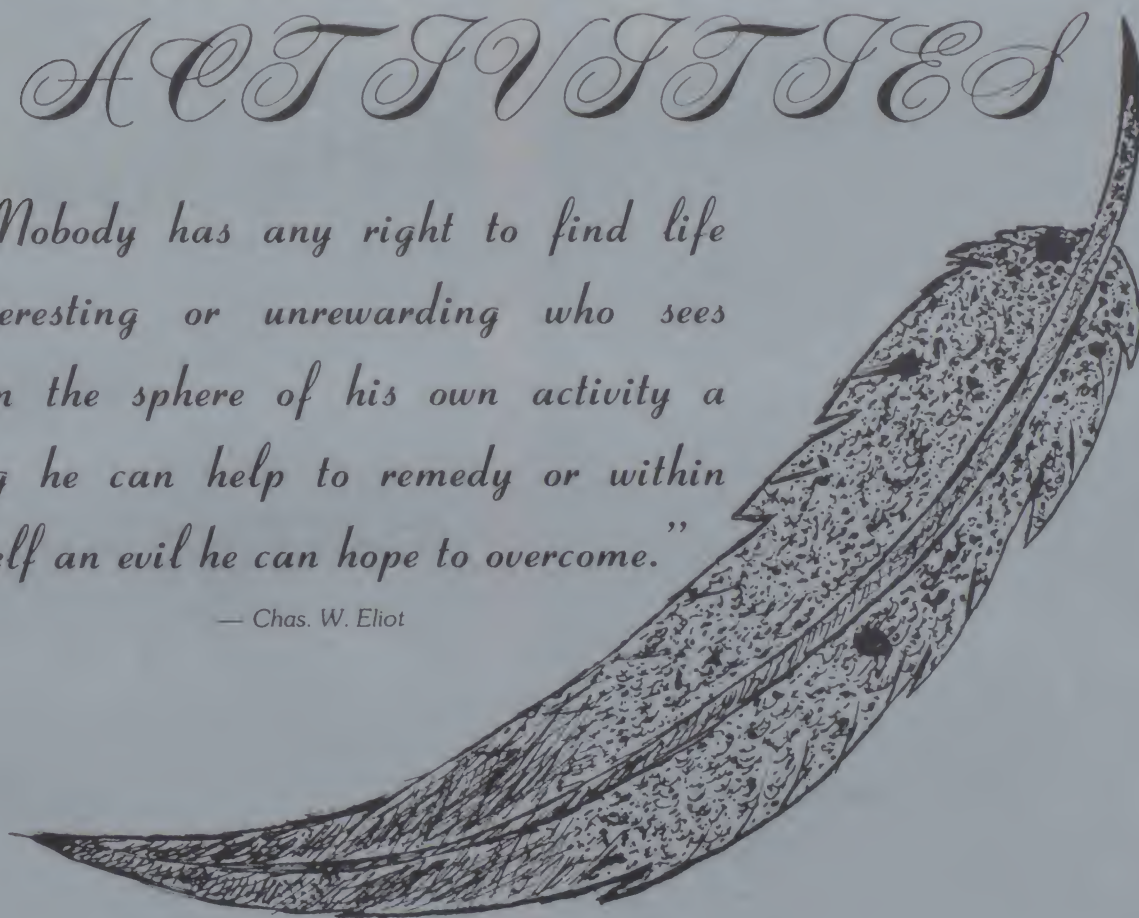 ACTIVITIES
Nobody has any right to find life
eresting or unrewarding who sees
n the sphere of his own activity a
g he can help to remedy or within
elf an evil he can hope to overcome.”
— Chas. W. Eliot